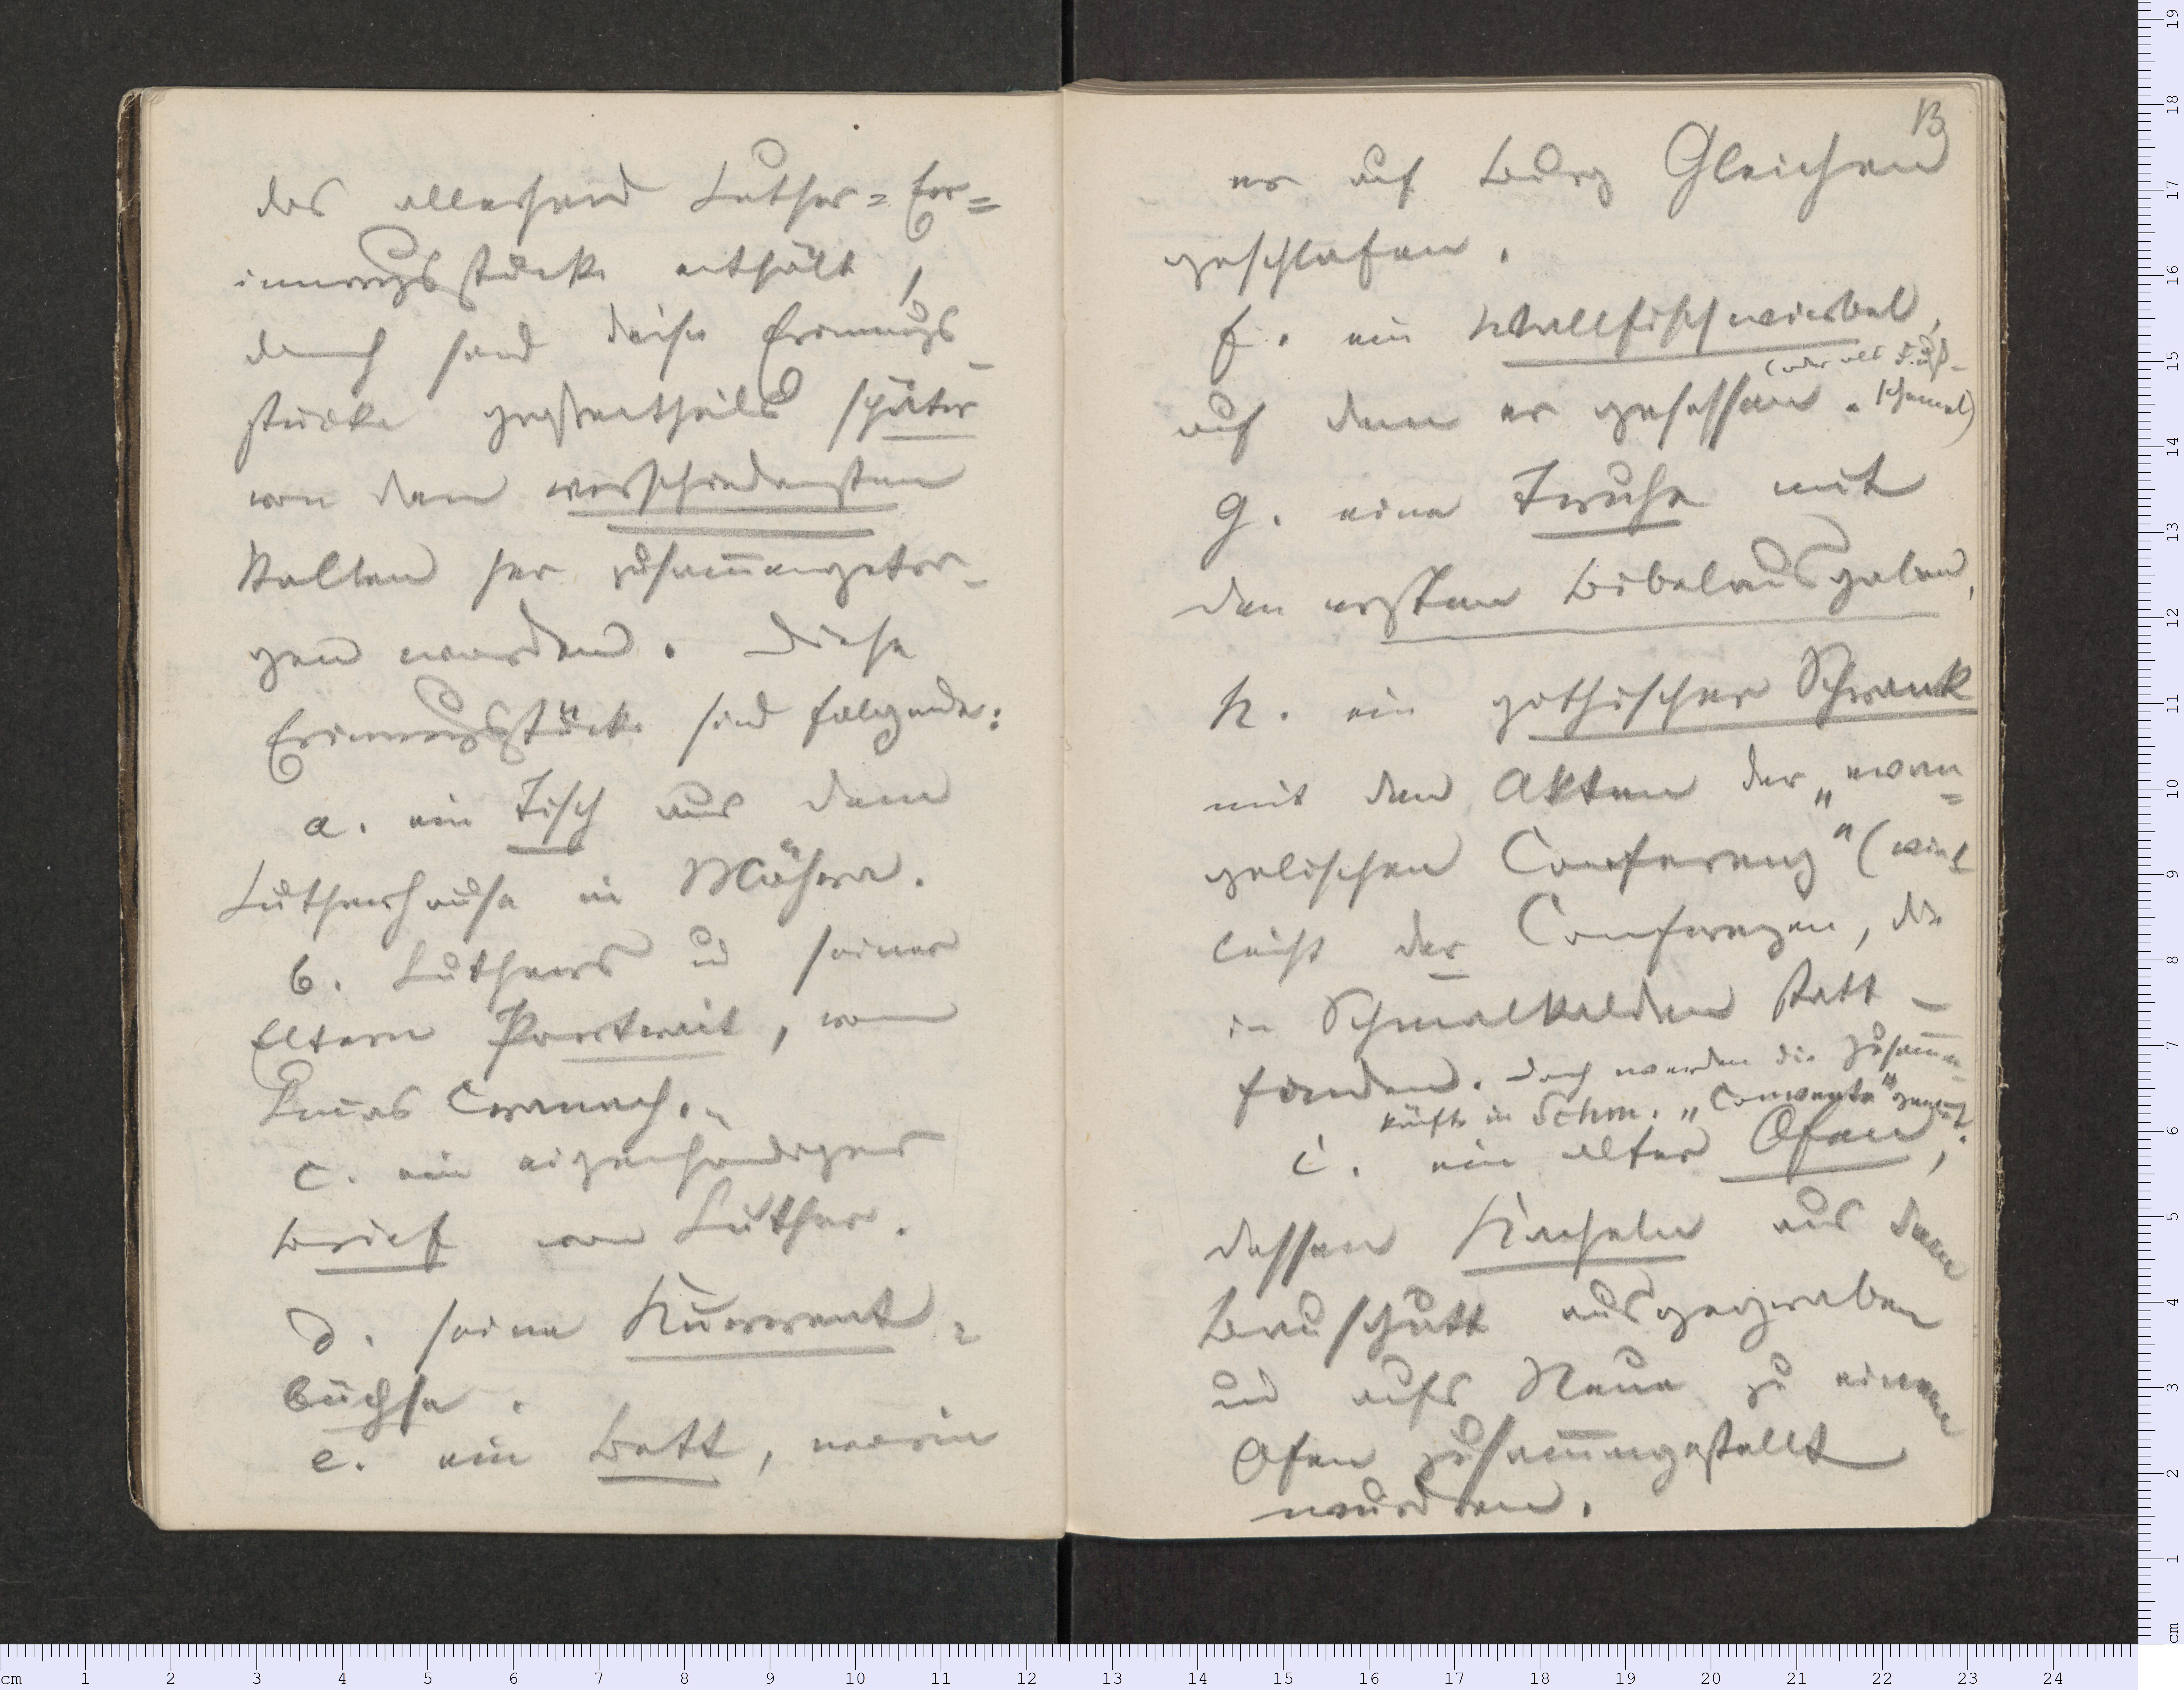 das allerhand Luther=Er=
innrungsstücke enthält,
doch sind diese Erinnrungs
stücke großentheils später
von den verschiedensten
Stellen her zusam̅engetra-
gen worden. Diese
Erinnrungsstücke sind folgende:
a. ein Tisch aus dem
Lutherhause in Möhra.
b. Luthers und seiner
Eltern Portrait, von
Lucas Cranach.
c. ein eigenhändiger
Brief von Luther.
d. seine Kurrent=
büchse.
e. ein Bett, worin
13
er auf Burg Gleichen
geschlafen.
f. ein Wallfischwirbel,
auf dem er gesessen. (oder als Fuß-
schemel)
g. eine Truhe mit
den ersten Bibelausgaben,
h. ein gothischer Schrank
mit den Akten der „evan=
gelischen Conferenz“ (viel
leicht der Conferenzen, die
in Schmalkalden statt-
fanden. Doch werden die Zusam̅en
künfte in Schm. „Convente“ genannt.
i. ein alter Ofen,
dessen Kacheln aus dem
Bauschutt ausgegraben
und aufs Neue zu einem
Ofen zusam̅engestellt
wurden.